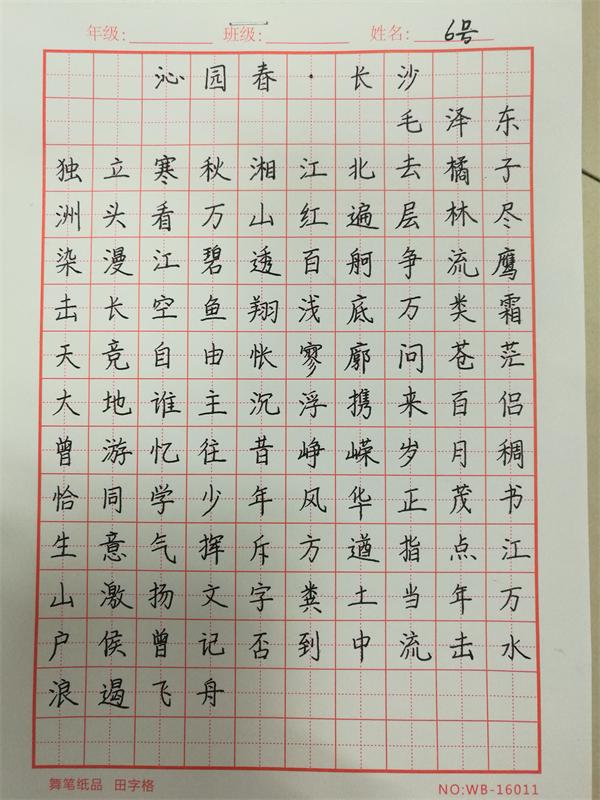 年级: 班级: 姓名: 6号
沁园春·长沙
毛泽东
独立寒秋湘江北去橘子
洲头看万山红遍层林尽
染漫江碧透百舸争流鹰
击长空鱼翔浅底万类霜
天竞自由怅寥廓问苍茫
大地谁主沉浮携来百侣
曾游忆往昔峥嵘岁月稠
恰同学少年风华正茂书
生意气挥斥方遒指点江
山激扬文字粪土当年万
户侯曾记否到中流击水
浪遏飞舟
舞笔纸品 田字格 NO:WB-16011